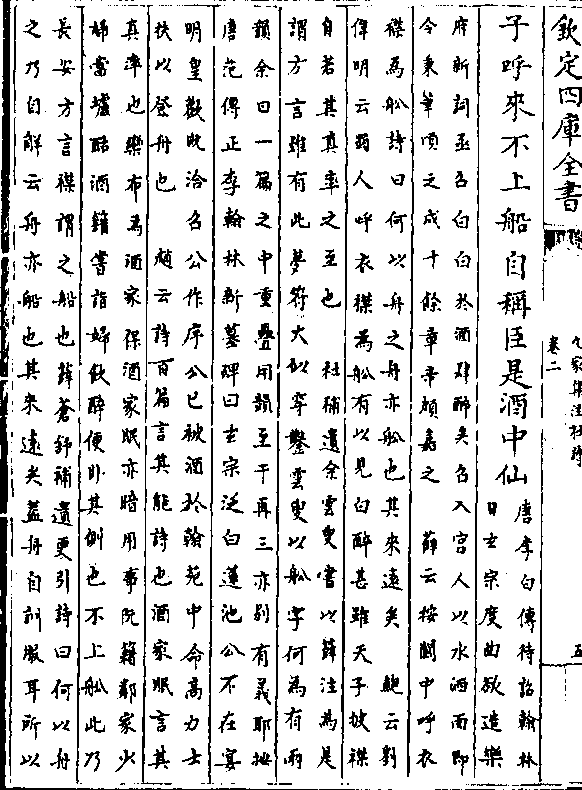 欽定四庫全書
九家集注杜詩
卷二
五
子呼來不上船自稱臣是酒中仙
唐李白傳待詔翰林
日玄宗度曲欲造樂
府新詞亟召白白於酒肆醉矣召入宫人以水洒面即
令秉筆頃之成十餘章帝頗嘉之 薛云按關中呼衣
襟為舩詩曰何以舟之舟亦舩也其來遠矣 鮑云對
偉明云蜀人呼衣襟為舩有以見白醉甚雖天子披襟
自若其真率之至也 杜補遺余雲叟嘗以薛注為是
謂方言雖有此夢符大似穿鑿雲叟以舩字何為有兩
韻余曰一篇之中重疊用韻至于再三亦别有義耶按
唐范傳正李翰林新墓碑曰玄宗泛白蓮池公不在宴
明皇歡既洽召公作序公已被酒於翰苑中命高力士
扶以登舟也 趙云詩百篇言其能詩也酒家眠言其
真率也欒布為酒家保酒家眠亦暗用事阮籍鄰家少
婦當壚酤酒籍嘗詣婦飲醉便卧其側也不上舩此乃
長安方言襟謂之船也薛蒼舒補遺更引詩曰何以舟
之乃自解云舟亦船也其來遠矣蓋舟自訓服耳所以